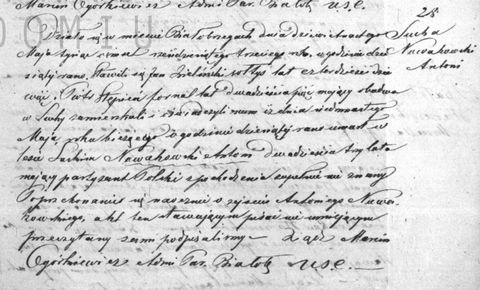 Marcin Ogórkiewicz Admi Par. Białob. U.S.C.
28
Sucha
Nowakowski
Antoni
Działo się w mieście Białobrzegach dnia dziewiątego
Maja tysiąc ośmset sześćdziesiątego trzeciego roku, o godzinie dzie
siątej rano, stawili się Jan Zieliński sołtys lat czterdzieści dzie
więć, Piotr Stępień fornal lat dwadzieścia pięć mający obadwa
w Suchy zamieszkali i oświadczyli nam iż dnia siódmego
Maja roku bieżącego o godzinie dziesiątej rano umarł w
lesie Suchim Nowakowski Antoni dwadzieścia trzy lata
mający partyzant Polski z pochodzenia zupełnie nie znany
Po przekonaniu się naocznie o zejściu Antoniego Nowa
kowskiego, akt ten stawającym pisać nie umiejącym
przeczytany sami podpisaliśmy — Ksiądz Marcin
Ogórkiewicz Admi Par. Białob. U.S.C.